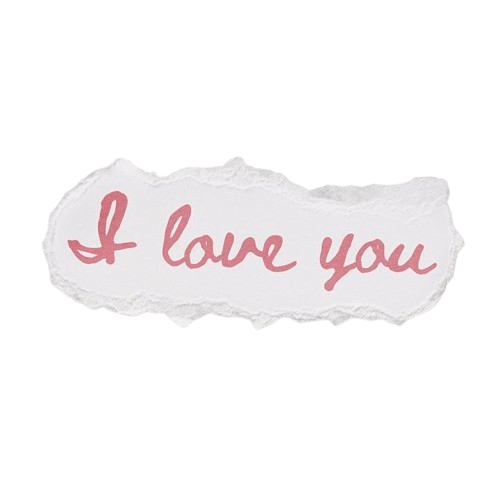 I love you